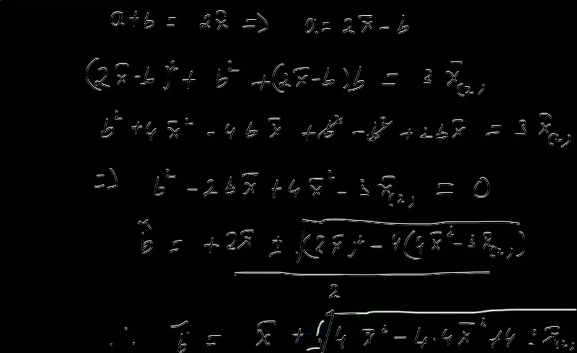 a+b = 2x̄ => a = 2x̄ - b
(2x̄-b)² + b² + (2x̄-b)b = 3 x̄₍₂₎
b² + 4x̄² - 4bx̄ + b² - b² + 2bx̄ = 3 x̄₍₂₎
=> b² - 2bx̄ + 4x̄² - 3x̄₍₂₎ = 0
b̂ = +2x̄ ± √(2x̄)² - 4(4x̄² - 3x̄₍₂₎)
2
∴ b̂ = x̄ + √4x̄² - 4.4x̄² + 4.3x̄₍₂₎